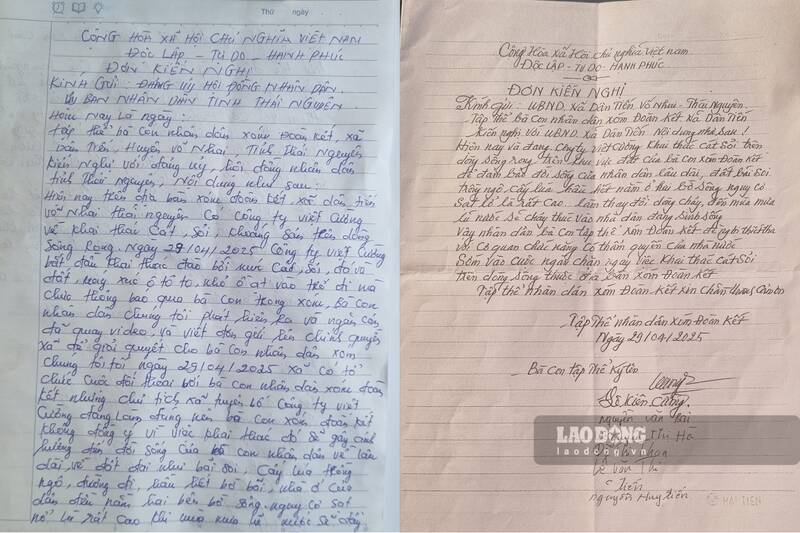 Thứ ngày
CỘNG HÒA XÃ HỘI CHỦ NGHĨA VIỆT NAM
ĐỘC LẬP - TỰ DO - HẠNH PHÚC
ĐƠN KIẾN NGHỊ
KÍNH GỬI: ĐẢNG ỦY HỘI ĐỒNG NHÂN DÂN
ỦY BAN NHÂN DÂN TỈNH THÁI NGUYÊN
Hôm nay là ngày:
tập thể bà con nhân dân xóm Đoàn kết, xã
Dân Tiến, Huyện Võ Nhai, Tỉnh Thái Nguyên
kiến Nghị với đảng ủy, hội đồng nhân dân
tỉnh Thái Nguyên, Nội dung như sau:
Hiện nay trên địa bàn xóm đoàn kết, xã dân tiến
võ Nhai thái nguyên Có Công ty việt Cường
về khai thác Cát, Sỏi, khoáng sản trên dòng
Sông Rong. Ngày 29/04/2025 Công ty việt Cường
bắt đầu khai thác đào bới xúc Cát, Sỏi, đá và
đất, máy xúc ô tô to, nhỏ ồ ạt vào trở đi mà
chưa thông báo qua bà con trong xóm, Bà Con
nhân dân chúng tôi phát hiện ra và ngăn cản
đã quay video, và viết đơn gửi lên chính quyền
xã để giải quyết cho bà con nhân dân xóm
chúng tôi tối ngày 29/04/2025 xã có tổ
chức cuộc đối thoại với bà con nhân dân xóm đoàn
kết nhưng chủ tịch xã tuyên bố Công ty việt
Cường đang làm đúng nên bà con xóm đoàn kết
không đồng ý vì việc khai thác đó sẽ gây ảnh
hưởng đến đời sống của bà con nhân dân về lâu
dài, về đất đai như bãi soi, Cây lúa trồng
ngô, đường đi, hầu hết bờ bãi, nhà ở của
dân đều nằm hai bên bờ sông. nguy cơ sạt
nở là rất cao khi mùa mưa lũ nước sẽ dâng
Cộng Hòa Xã Hội chủ nghĩa việt nam
ĐỘC LẬP - TỰ DO - HẠNH PHÚC
ĐƠN KIẾN NGHỊ
Kính gửi: UBND. Xã Dân Tiến Võ Nhai - Thái Nguyên.
Tập thể Bà con nhân dân xóm Đoàn Kết Xã Dân Tiến
Kiến nghị với UBND. Xã Dân Tiến Nội dung như sau!
Hiện nay và đang. Công ty việt Cường Khai thác cát sỏi trên
dòng sông rong, trên khu vực đất của bà con xóm Đoàn Kết
để đảm bảo đời sống của nhân dân lâu dài, đất bãi soi
trồng ngô, cây lúa hầu hết nằm ở hai bờ sông nguy cơ
sạt lở là rất cao. Làm thay đổi dòng chảy, đến mùa mưa
lũ nước sẽ chảy thúc vào nhà dân đang sinh sống
Vậy nhân dân bà con tập thể xóm Đoàn Kết đề nghị thiết tha
với cơ quan chức năng có thẩm quyền của nhà nước
Sớm vào cuộc ngăn chặn ngay việc Khai thác cát sỏi
trên dòng sông thuộc địa bàn xóm Đoàn Kết
Tập thể nhân dân xóm Đoàn Kết xin chân thành cảm ơn
Tập Thể nhân dân xóm Đoàn Kết
Ngày 29/04/2025
Bà Con tập thể ký tên
Kiên Cường.
nguyễn văn
Thị Hà
LAO ĐỘNG
laodong.vn
Lê Văn
Tiến
nguyễn Huy tiến
HẢI TIẾN